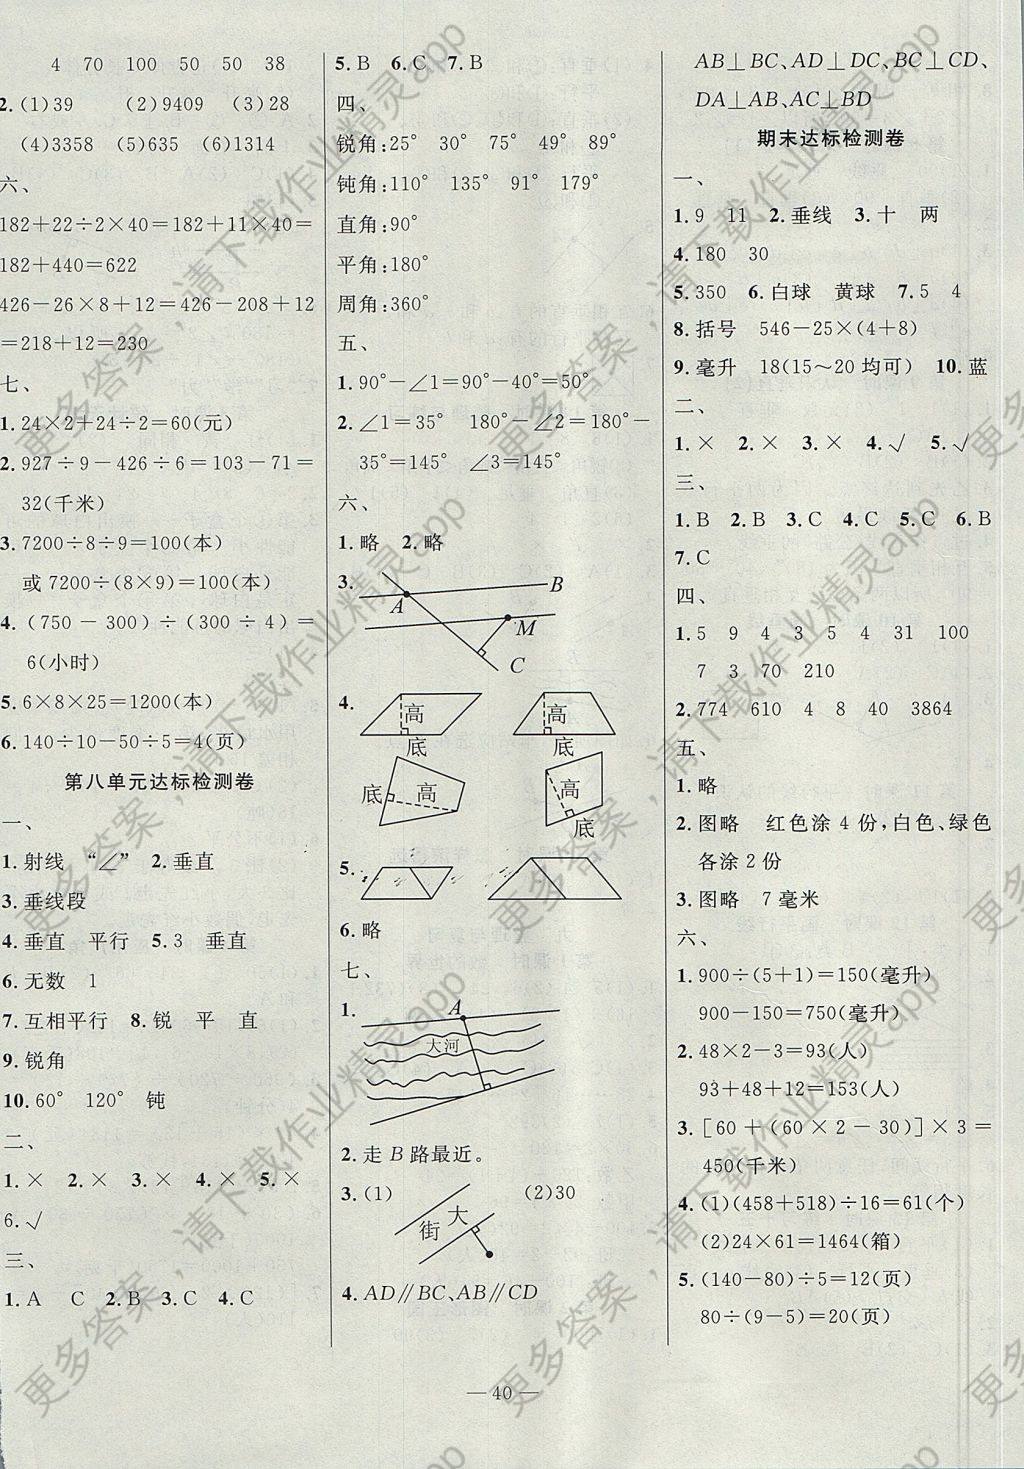 4 70 100 50 50 38
2.(1)39 (2)9409 (3)28
(4)3358 (5)635 (6)1314
六、
182+22÷2×40=182+11×40=
182+440=622
426-26×8+12=426-208+12
=218+12=230
七、
1.24×2+24÷2=60(元)
2.927÷9-426÷6=103-71=
32(千米)
3.7200÷8÷9=100(本)
或7200÷(8×9)=100(本)
4.(750-300)÷(300÷4)=
6(小时)
5.6×8×25=1200(本)
6.140÷10-50÷5=4(页)
第八单元达标检测卷
一、
1.射线 “∠” 2.垂直
3.垂线段
4.垂直 平行 5.3 垂直
6.无数 1
7.互相平行 8.锐 平 直
9.锐角
10.60° 120° 钝
二、
1.× 2.× 3.× 4.× 5.×
6.√
三、
1.A C 2.B 3.C 4.C
5.B 6.C 7.B
四、
锐角:25° 30° 75° 49° 89°
钝角:110° 135° 91° 179°
直角:90°
平角:180°
周角:360°
五、
1.90°-∠1=90°-40°=50°
2.∠1=35° 180°-∠2=180°-
35°=145° ∠3=145°
六、
1.略 2.略
3.
A
B
M
C
4.
高
底
高
底
底
高
高
底
5.
6.略
七、
1.
A
大河
2.走B路最近。
3.(1) (2)30
街 大
4.AD∥BC、AB∥CD
AB⊥BC、AD⊥DC、BC⊥CD、
DA⊥AB、AC⊥BD
期末达标检测卷
一、
1.9 11 2.垂线 3.十 两
4.180 30
5.350 6.白球 黄球 7.5 4
8.括号 546-25×(4+8)
9.毫升 18(15~20均可) 10.蓝
二、
1.× 2.× 3.× 4.√ 5.√
三、
1.B 2.B 3.C 4.C 5.C 6.B
7.C
四、
1.5 9 4 3 5 4 31 100
7 3 70 210
2.774 610 4 8 40 3864
五、
1.略
2.图略 红色涂4份,白色、绿色
各涂2份
3.图略 7毫米
六、
1.900÷(5+1)=150(毫升)
900-150=750(毫升)
2.48×2-3=93(人)
93+48+12=153(人)
3.[60+(60×2-30)]×3=
450(千米)
4.(1)(458+518)÷16=61(个)
(2)24×61=1464(箱)
5.(140-80)÷5=12(页)
80÷(9-5)=20(页)
— 40 —
更多答案,请下载作业精灵app
更多答案,请下载作业精灵app
更多答案,请下载作业精灵app
更多答案,请下载作业精灵app
更多答案,请下载作业精灵app
更多答案,请下载作业精灵app